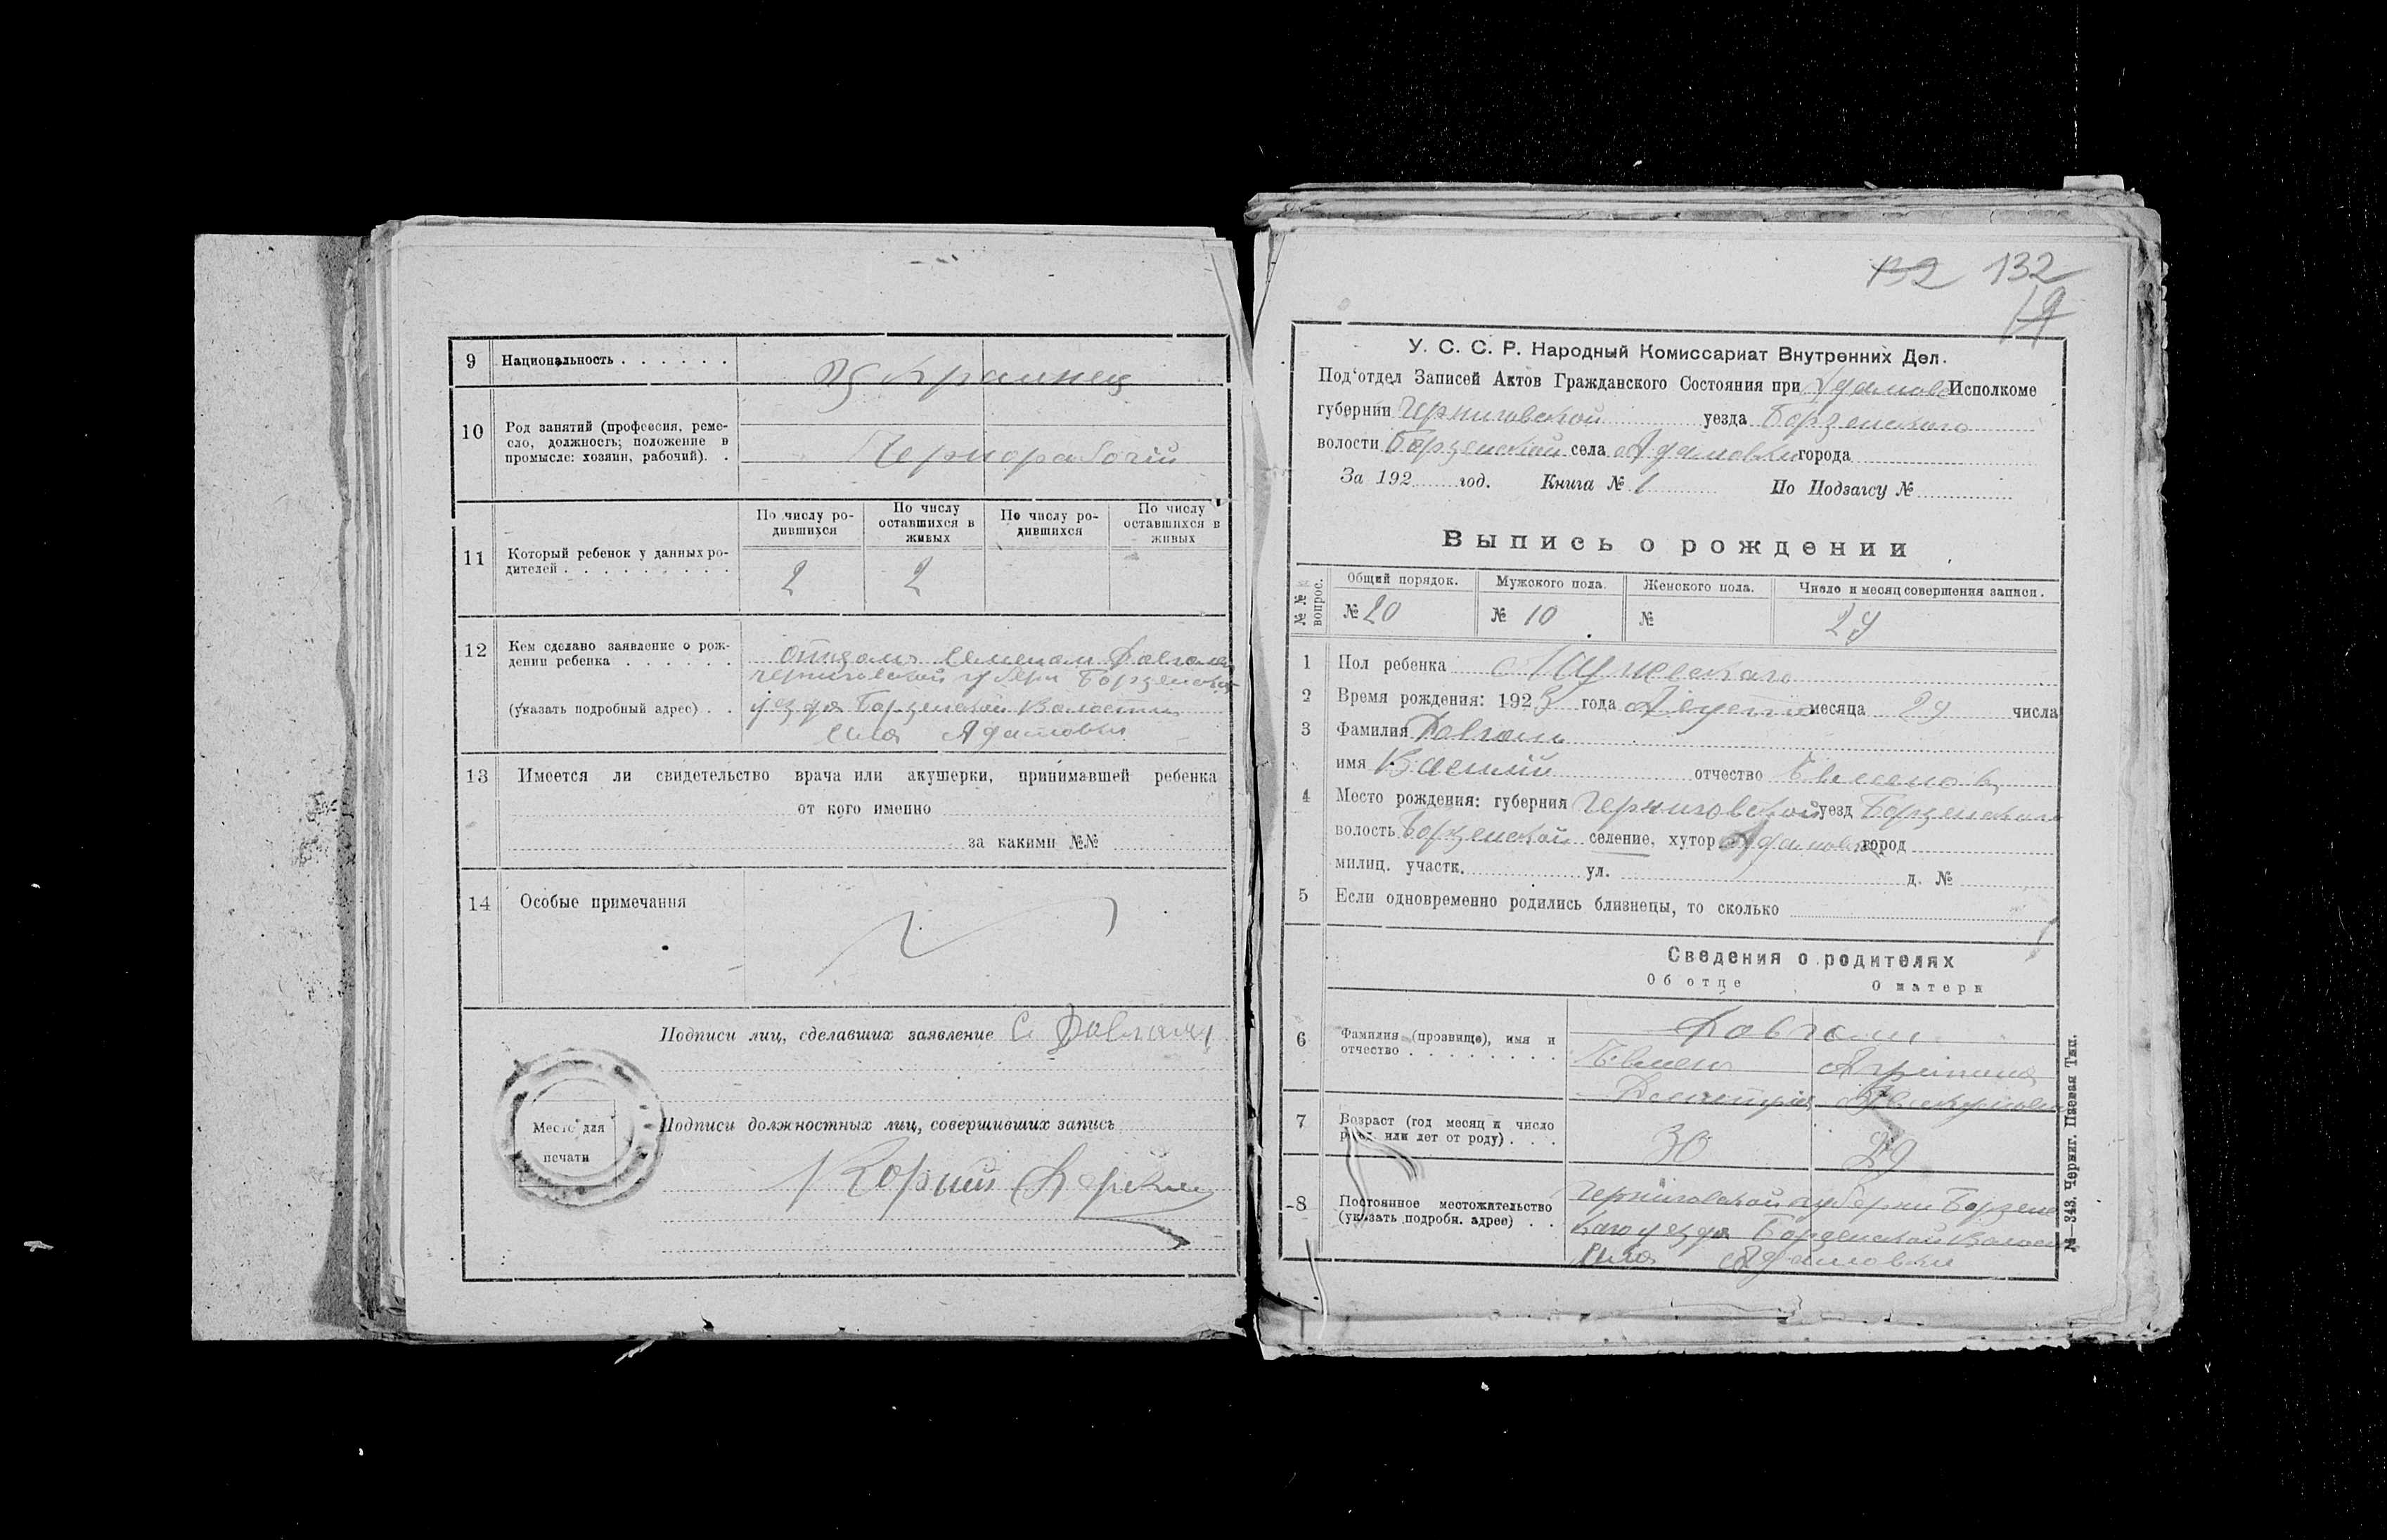 9 Национальность . . . . . .
Украинец
10 Род занятий (профессия, реме-
сло, должность; положение в
промысле: хозяин, рабочий). .
Чернорабочий
11 Который ребенок у данных ро-
дителей . . . . . . . . .
По числу ро-
дившихся
По числу
оставшихся в
живых
По числу ро-
дившихся
По числу
оставшихся в
живых
2 2
12 Кем сделано заявление о рож-
дении ребенка . . . . . .
(указать подробный адрес) . .
отцом
черниговской губерн Борзенск
уезда Борзенской Волости
села Адамовки
13 Имеется ли свидетельство врача или акушерки, принимавшей ребенка
от кого именно
за какими №№
14 Особые примечания
Подписи лиц, сделавших заявление С Довгаль
Место для
печати
Подписи должностных лиц, совершивших запись
132 132
19
У. С. С. Р. Народный Комиссариат Внутренних Дел.
Под'отдел Записей Актов Гражданского Состояния при Адамовс Исполкоме
губернии Черниговской уезда Борзенского
волости Борзенской села Адамовки города
За 192 год. Книга № 1 По Подзагсу №
Выпись о рождении
№№ вопрос.
Общий порядок. Мужского пола. Женского пола. Число и месяц совершения записи.
№ 20 № 10 № 29
1 Пол ребенка Мужескаго
2 Время рождения: 1923 года Августа месяца 29 числа
3 Фамилия Довгаль
имя Василий отчество
4 Место рождения: губерния Черниговской уезд Борзенскаго
волость Борзенской селение, хутор Адамовка город
милиц. участк. ул. д. №
5 Если одновременно родились близнецы, то сколько
Сведения о родителях
Об отце О матери
6 Фамилия (прозвище), имя и
отчество . . . . . . . .
Довгаль
Агрипина
7 Возраст (год месяц и число
рожд. или лет от роду) . . .
30 29
8 Постоянное местожительство
(указать подробн. адрес) . .
Черниговской губерни Борзенс
каго уезда Борзенской Волости
села Адамовки
№—343. Черниг. Паевая Тип.